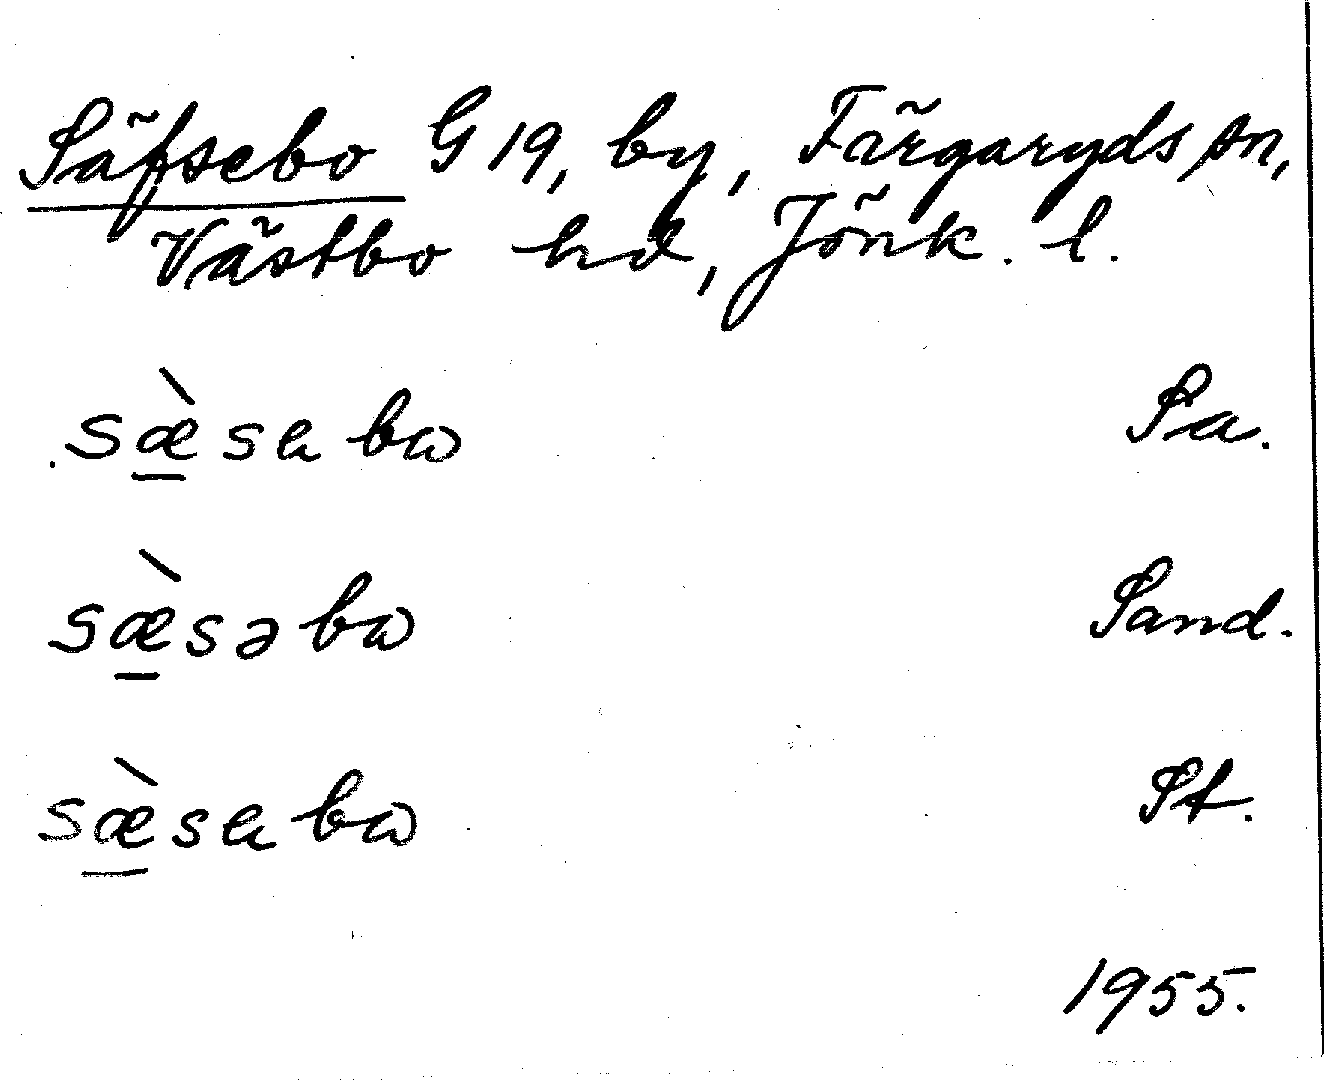 Säfsebo G 19, by, Färgaryds sn,
Västbo hd, Jönk. l.
sæ̠̀sebω Sa.
sæ̠̀səbω Sand.
sæ̠̀sebω St.
1955.